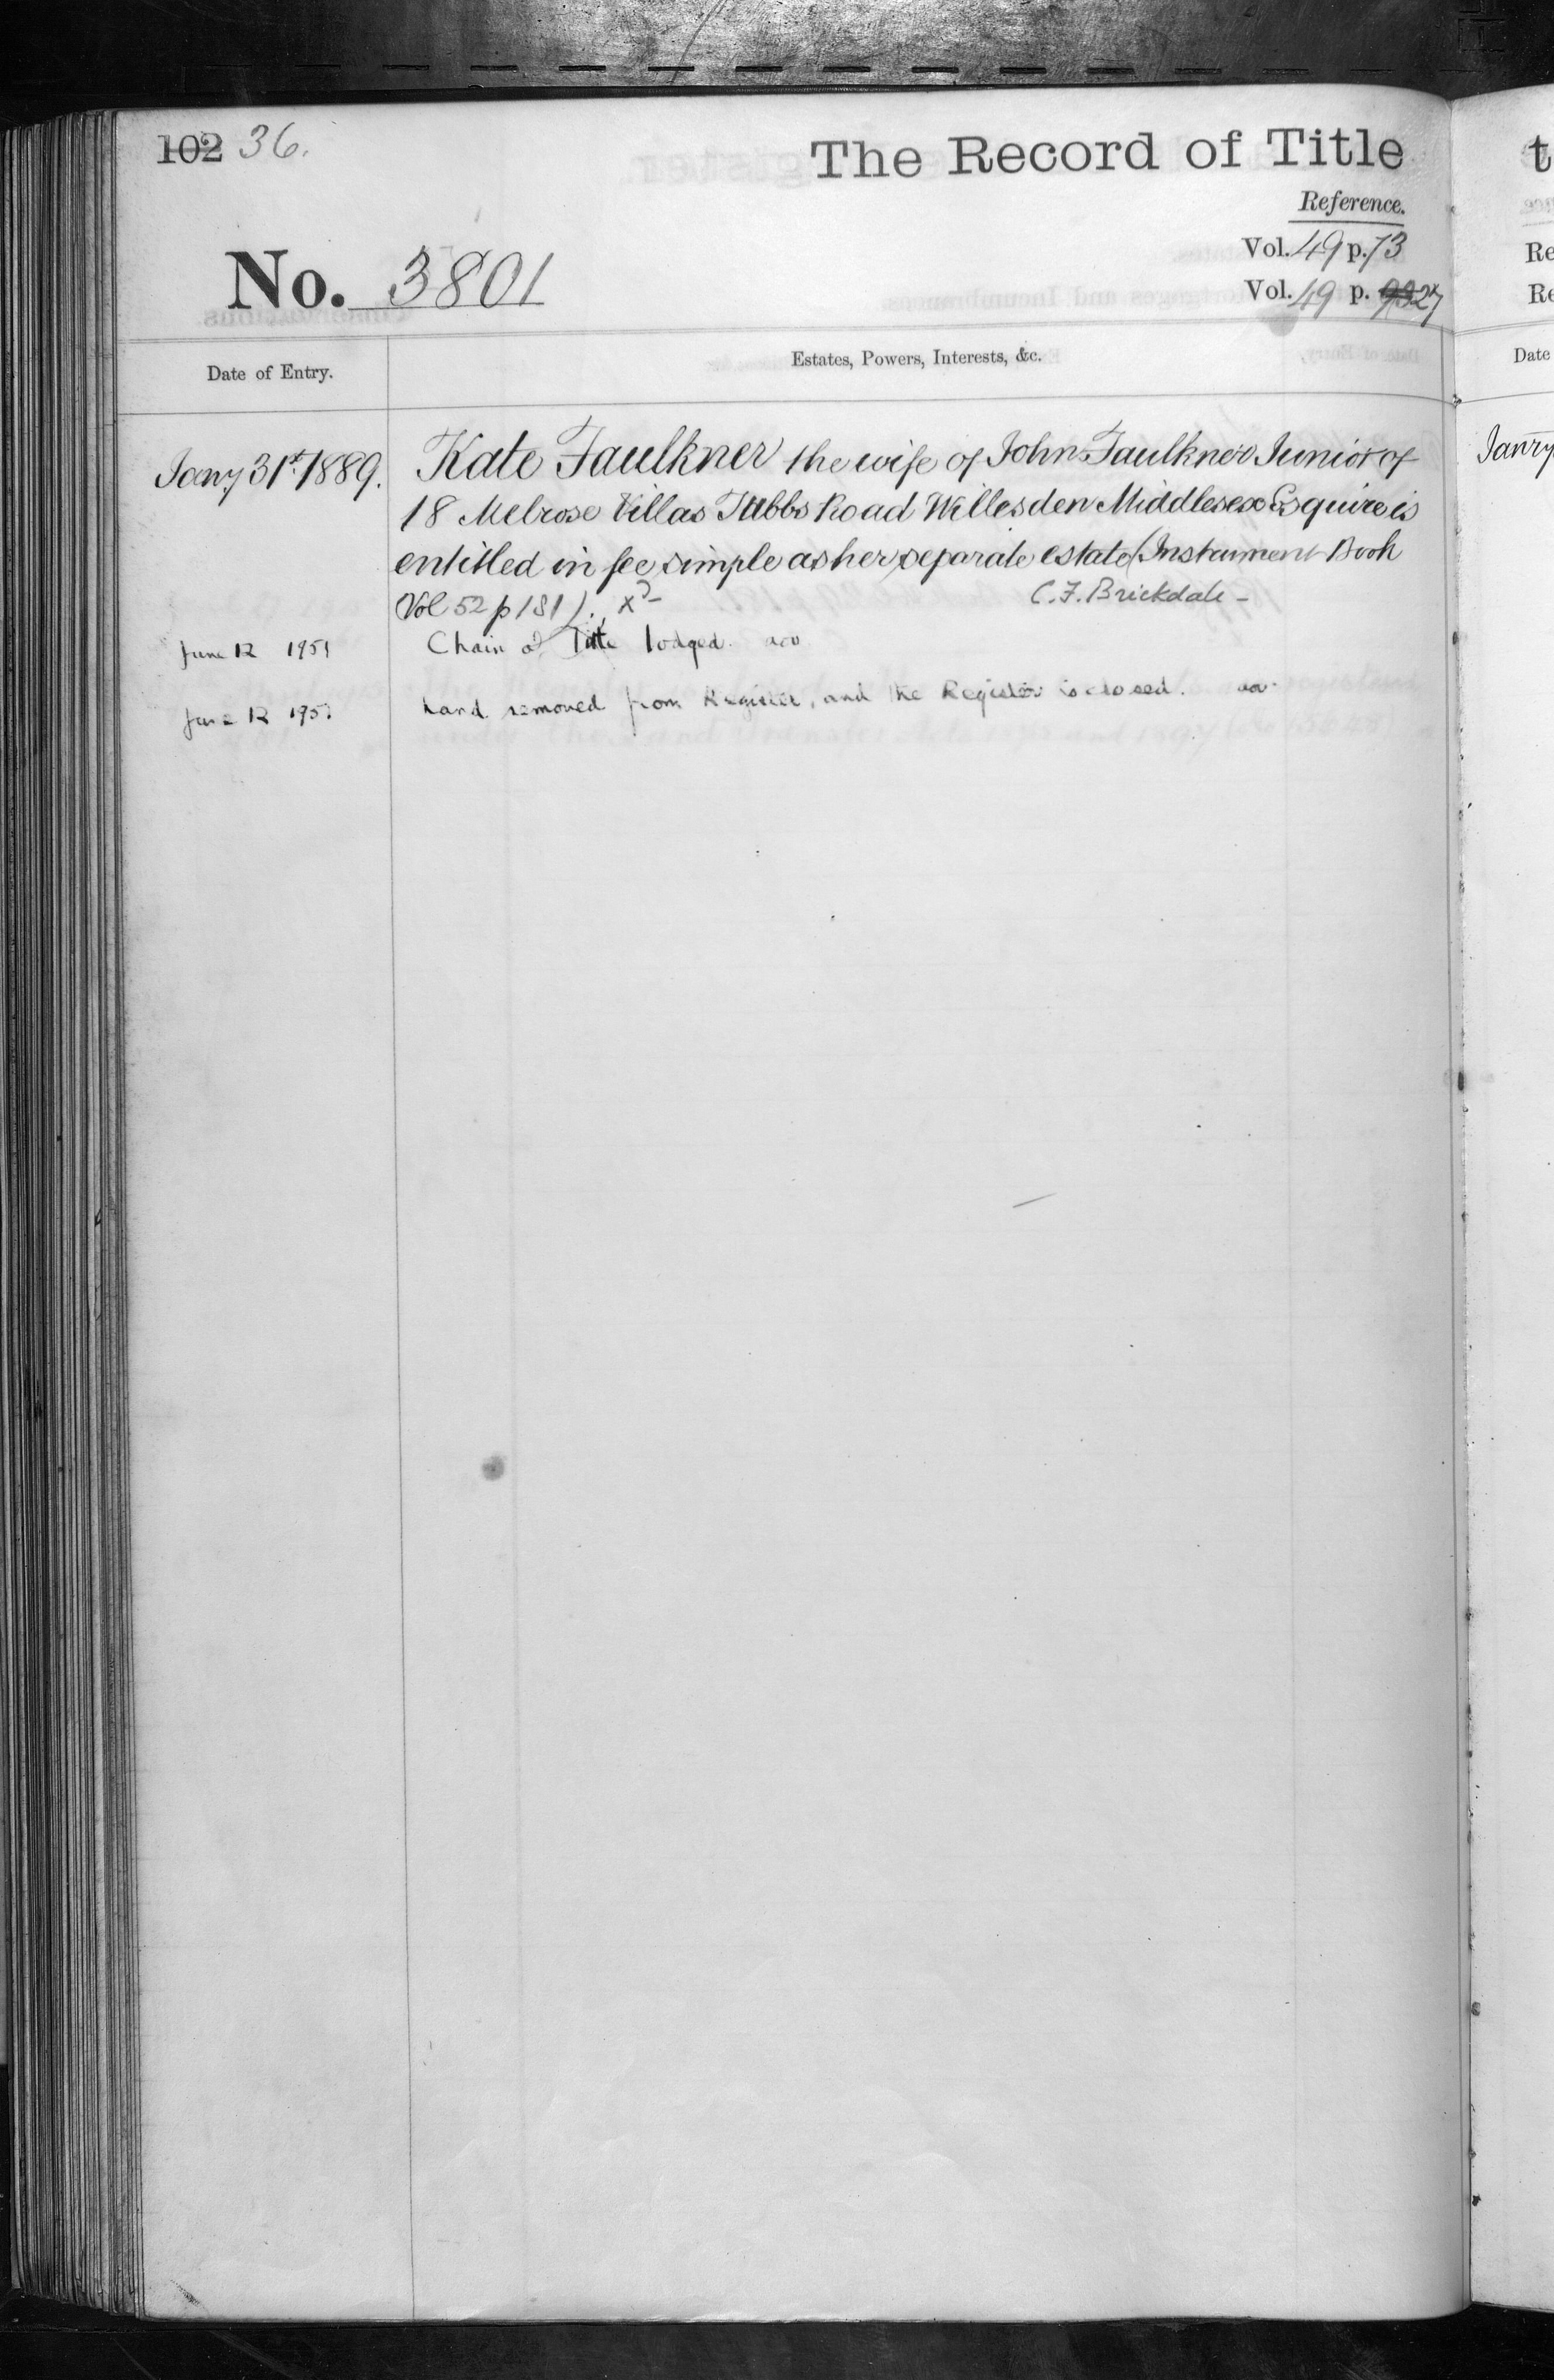 102 36.
The Record of Title
Reference.
Vol. 49 p. 73
No. 3801
Vol. 49 p. 27
Date of Entry.
Estates, Powers, Interests, &c.
Jany 31st 1889. Kate Faulkner the wife of John Faulkner Junior of
18 Melrose Villas Tubbs Road Willesden Middlesex Esquire is
entitled in fee simple as her separate estate (Instrument Book
Vol 52 p 181).
C. F. Brickdale -
June 12 1951 Chain of Title lodged.
June 12 1951 Land removed from Register, and the Register is closed.
t
Re
Re
Date
Janry